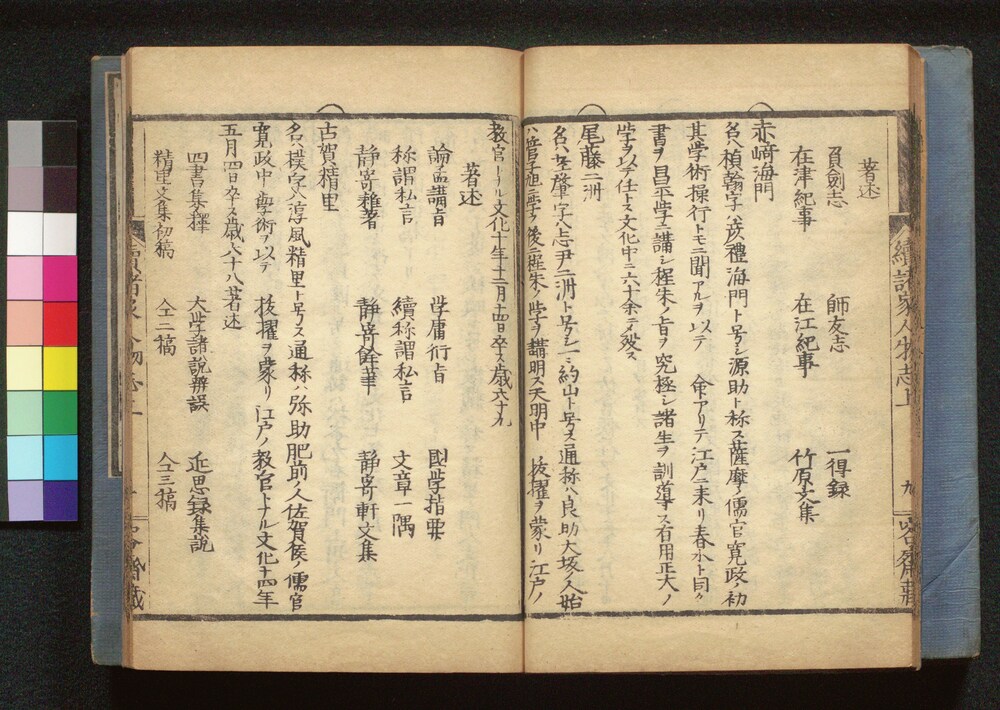 續諸家人物志上
九
著述
負劍志
師友志
一得録
在津紀事
在江紀事
竹原文集
赤﨑海門
名ハ楨翰字ハ彦禮海門ト号シ源助ト称ス薩摩ノ儒官寛政ノ初
其学術操行トモニ聞アルヲ以テ 命アリテ江戸ニ来リ春水ト同ク
書ヲ昌平学ニ講シ程朱ノ旨ヲ究極シ諸生ヲ訓導ス有用正大ノ
学ヲ以テ仕ト文化中ニ六十余ニテ殁ス
尾藤二洲
名ハ孝肇字ハ志尹二洲ト号シ一ニ約山ト号ス通称ハ良助大坂ノ人始
ハ管子旭ニ学ヒ後ニ程朱ノ学ヲ講明ス天明中 抜擢ヲ蒙リ江戸ノ
教官トナル文化十年十二月十四日卒ス歳六十九
著述
論孟講旨
学庸衍旨
國学指要
称謂私言
續称謂私言
文章一隅
静寄雜著
静寄餘筆
静寄軒文集
古賀精里
名ハ撲字ハ淳風精里ト号ス通称ハ弥助肥前ノ人佐賀侯ノ儒官
寛政中学術ヲ以テ 抜擢ヲ蒙リ江戸ノ教官トナル文化十四年
五月四日卒ス歳六十八著述
四書集釋
大学諸説辨誤
近思録集説
精里文集初稿
仝二稿
仝三稿